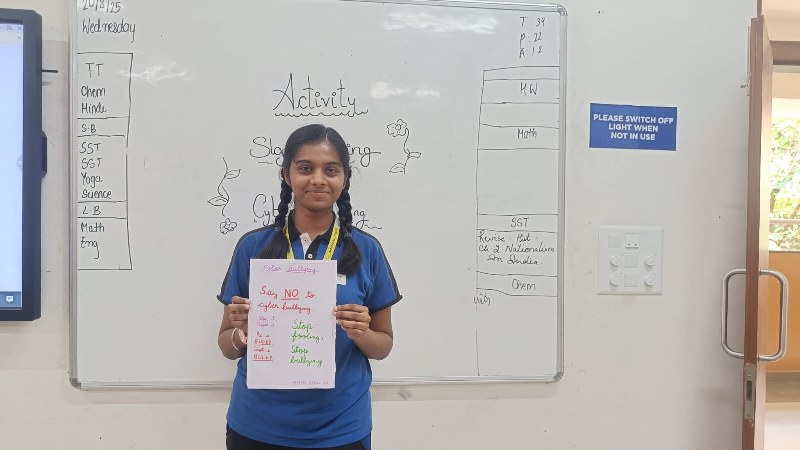 20/8/25
Wednesday
TT
Chem
Hindi
S.B
SST
SST
Yoga
Science
L.B
Math
Eng
Activity
T : 34
P : 22
A : 12
H.W
Math
SST
Revise Hist -
Ch 2 Nationalism
in India.
Chem
PLEASE SWITCH OFF
LIGHT WHEN
NOT IN USE
Cyber Bullying
Say NO to
cyber bullying
Stop it,
Be a
BUDDY
not a
BULLY
Stop
fooling,
Stop
bullying